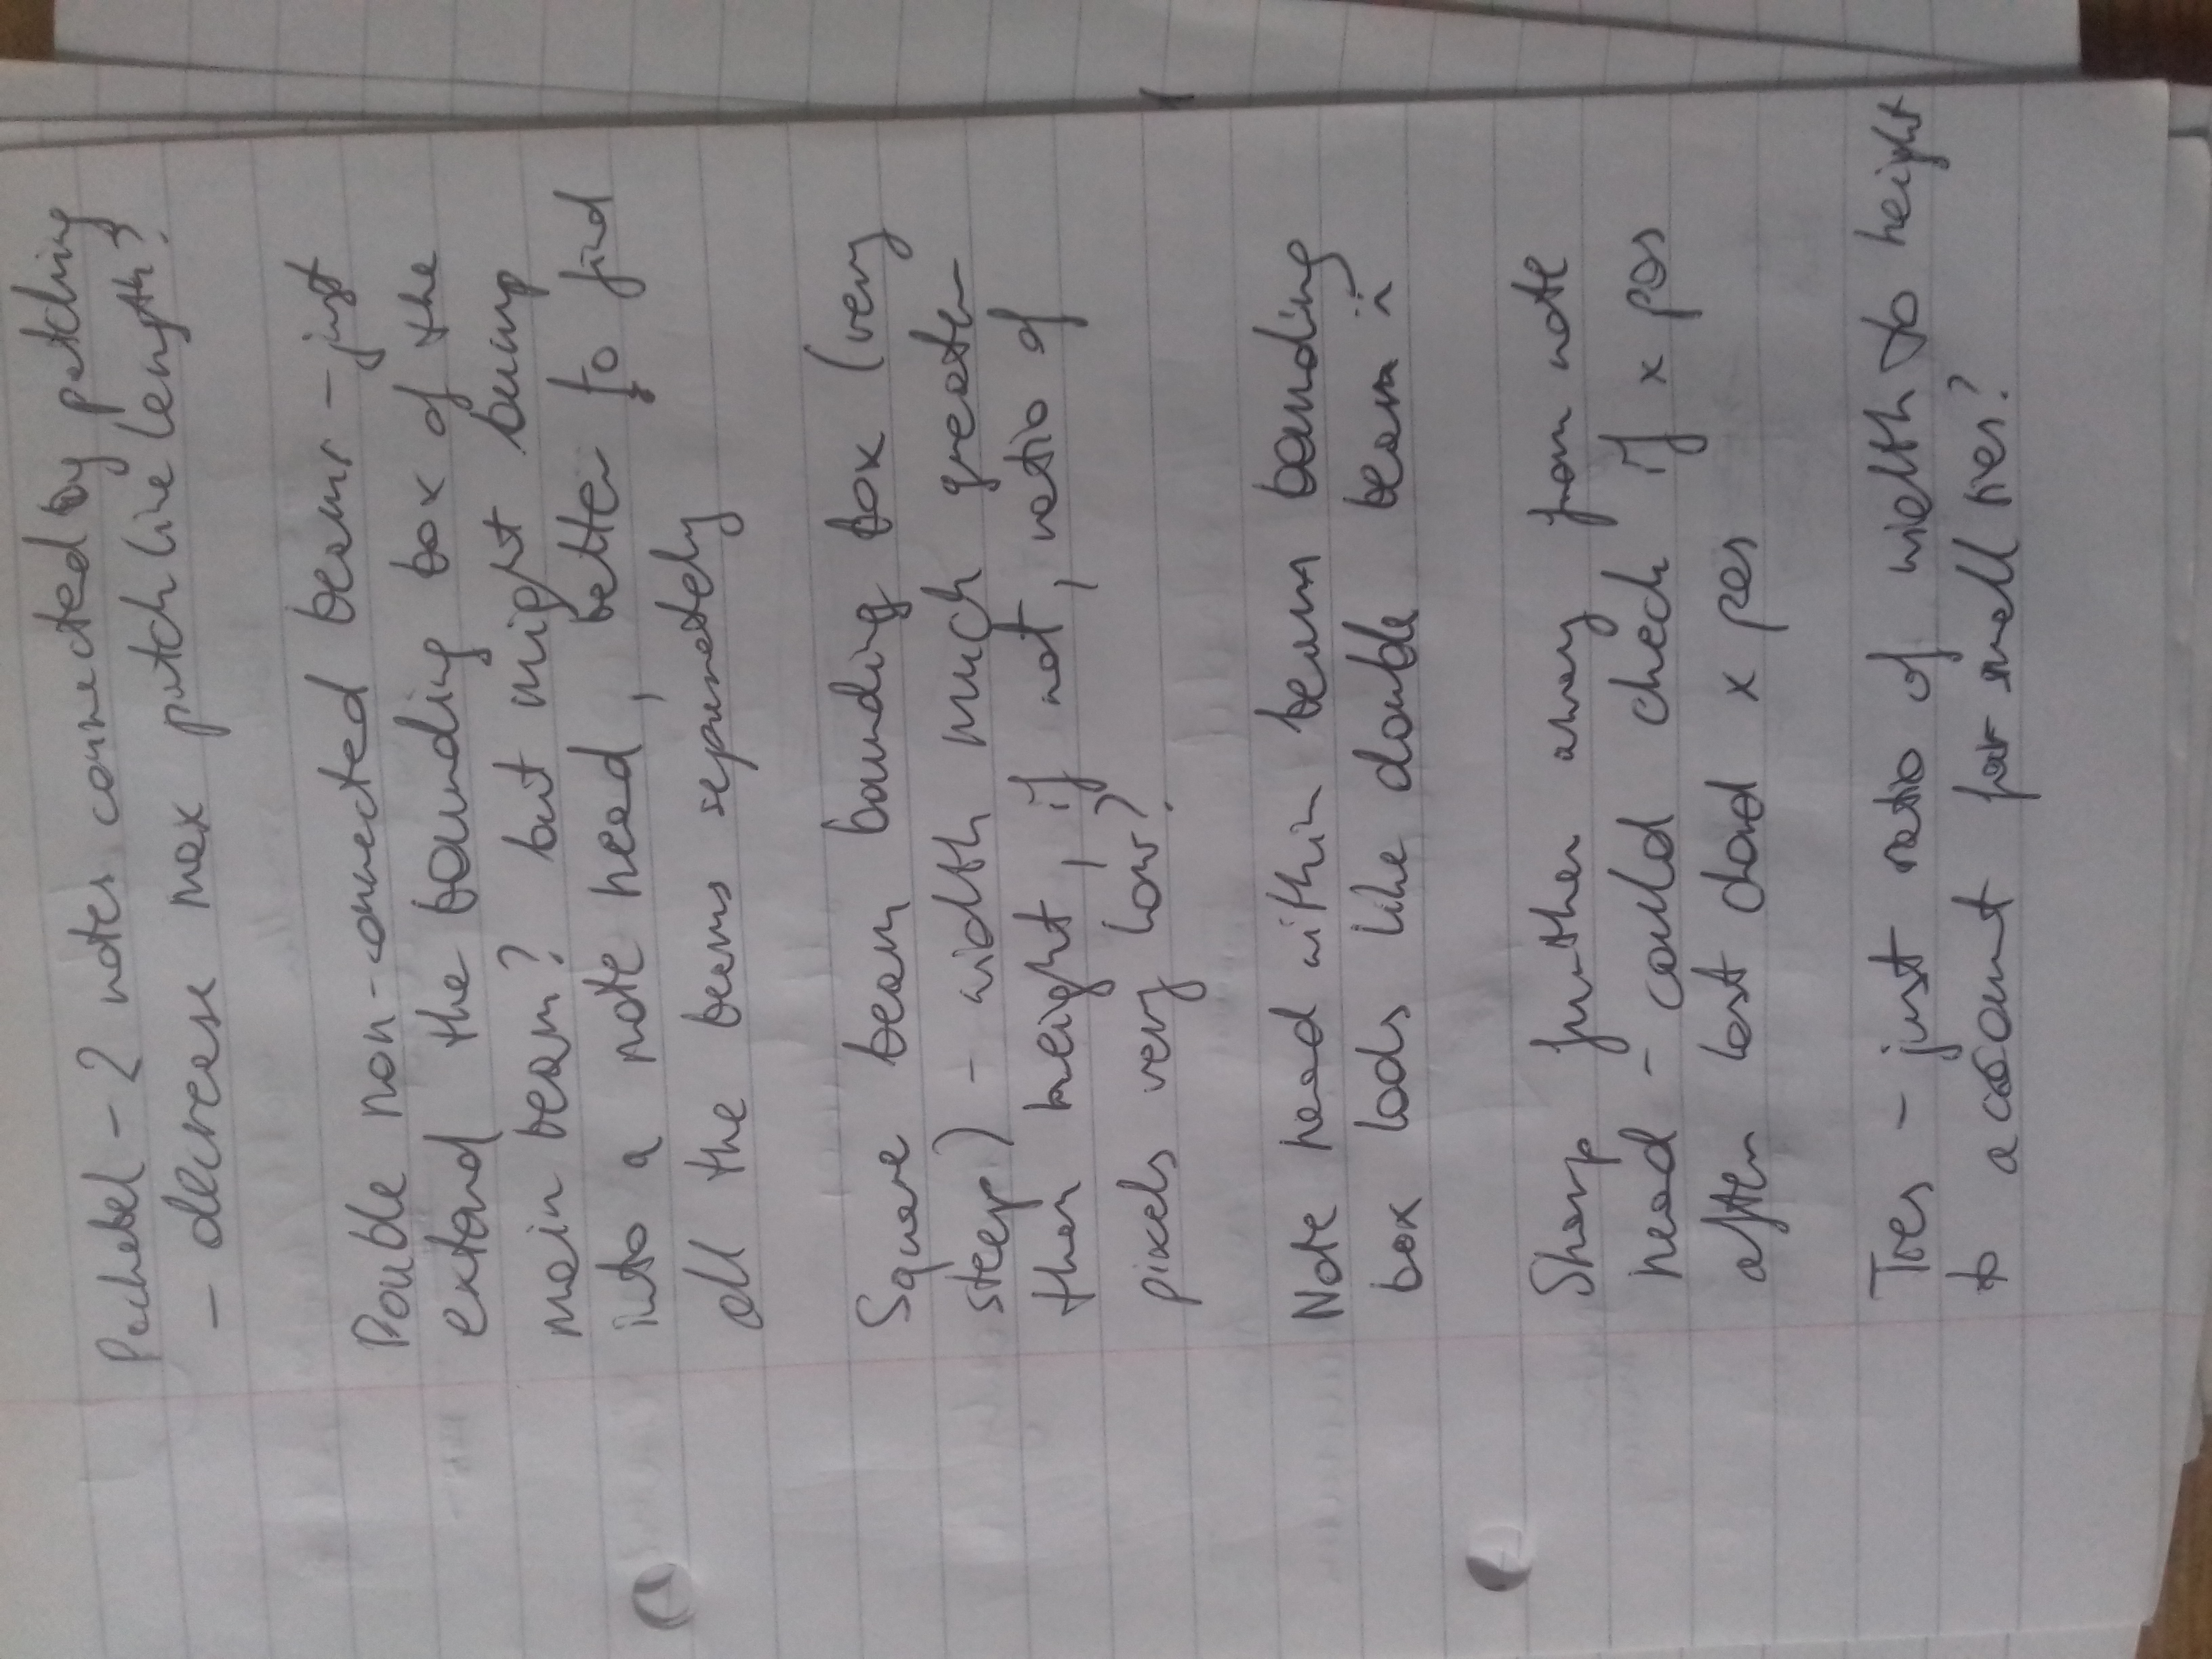 Pachebel - 2 notes connected by patching
- decrease max patch line length?
Double non-connected beams - just
extend the bounding box of the
main beam? but might bump
into a note head, better to find
all the beams separately
Square beam bounding box (very
steep) - width much greater
than height, if not, ratio of
pixels very low?
Note head within beam bounding
box looks like double beam :(
Sharp further away from note
head - could check if x pos
after last chord x pos
Ties - just ratio of width to height
to account for small ties?